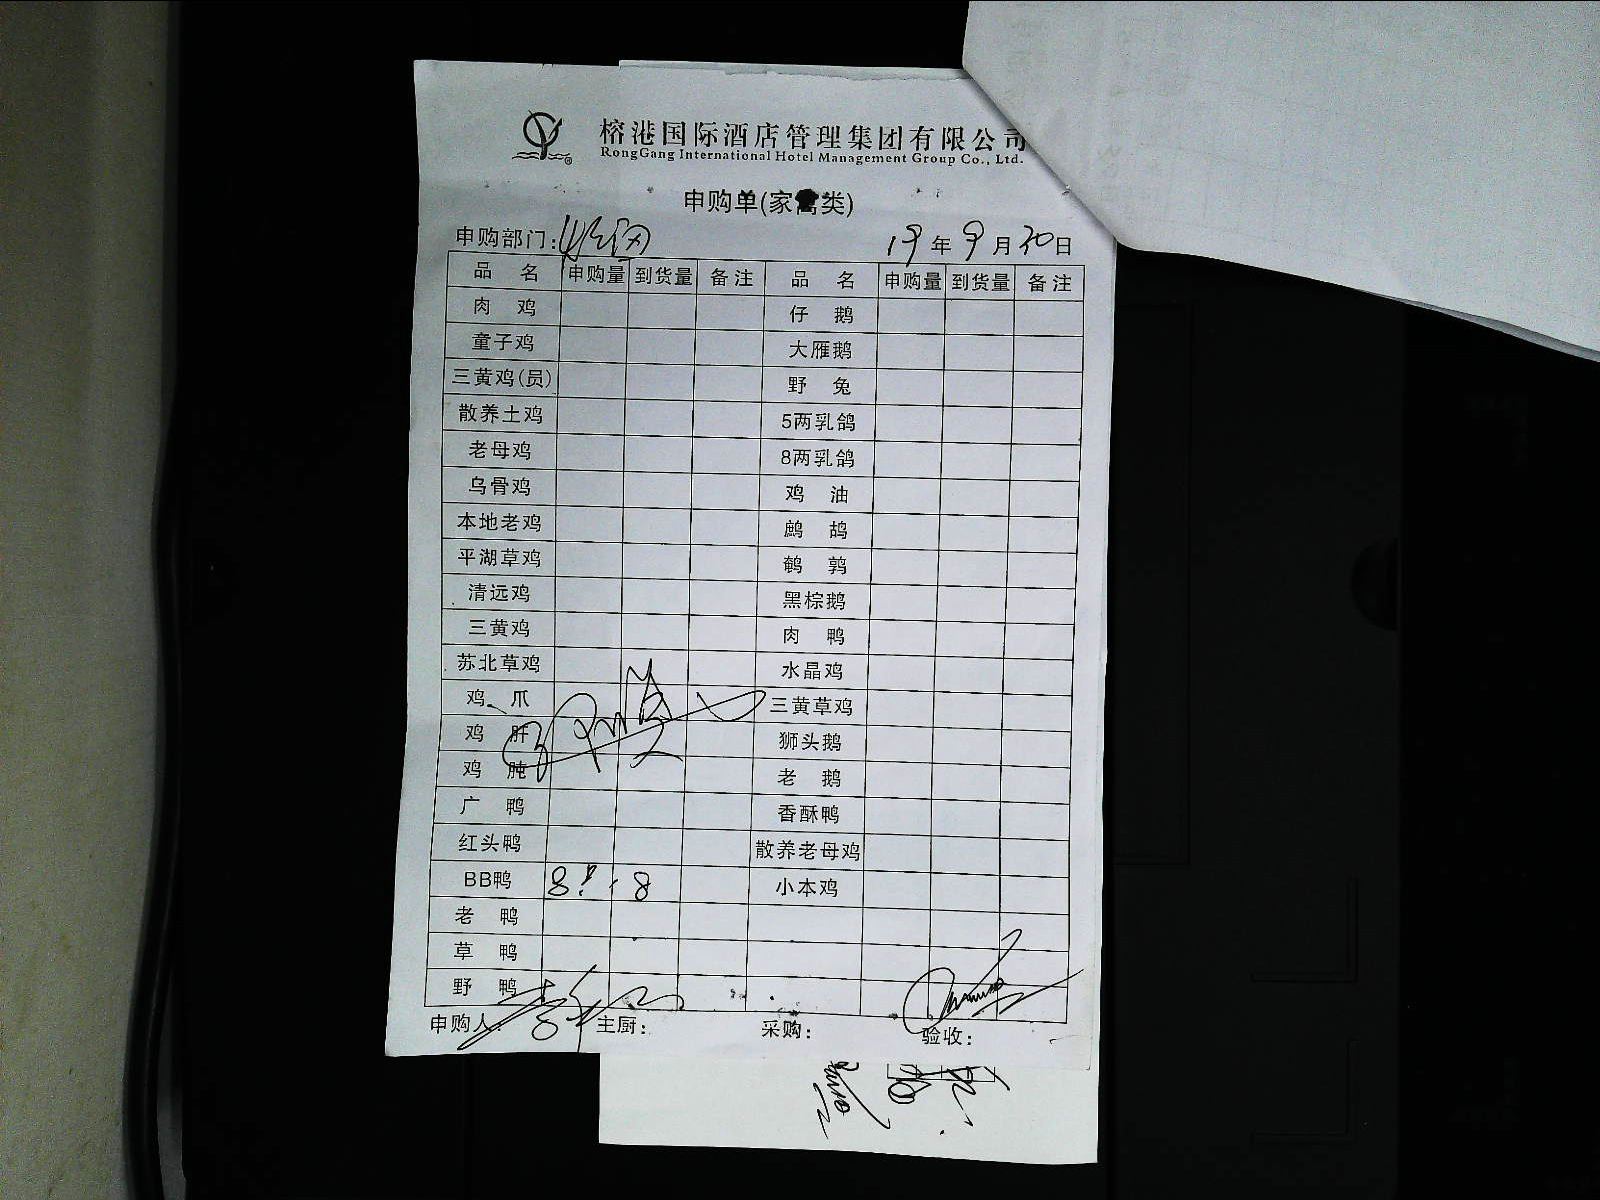 榕港国际酒店管理集团有限公司
RongGang International Hotel Management Group Co., Ltd.
申购单(家禽类)
申购部门: 19年9月30日
品名 申购量 到货量 备注 品名 申购量 到货量 备注
肉鸡 仔鹅
童子鸡 大雁鹅
三黄鸡(员) 野兔
散养土鸡 5两乳鸽
老母鸡 8两乳鸽
乌骨鸡 鸡油
本地老鸡 鹧鸪
平湖草鸡 鹌鹑
清远鸡 黑棕鹅
三黄鸡 肉鸭
苏北草鸡 水晶鸡
鸡爪 三黄草鸡
鸡肝 狮头鹅
鸡肫 老鹅
广鸭 香酥鸭
红头鸭 散养老母鸡
BB鸭 8 8 小本鸡
老鸭
草鸭
野鸭
申购人: 主厨: 采购: 验收: